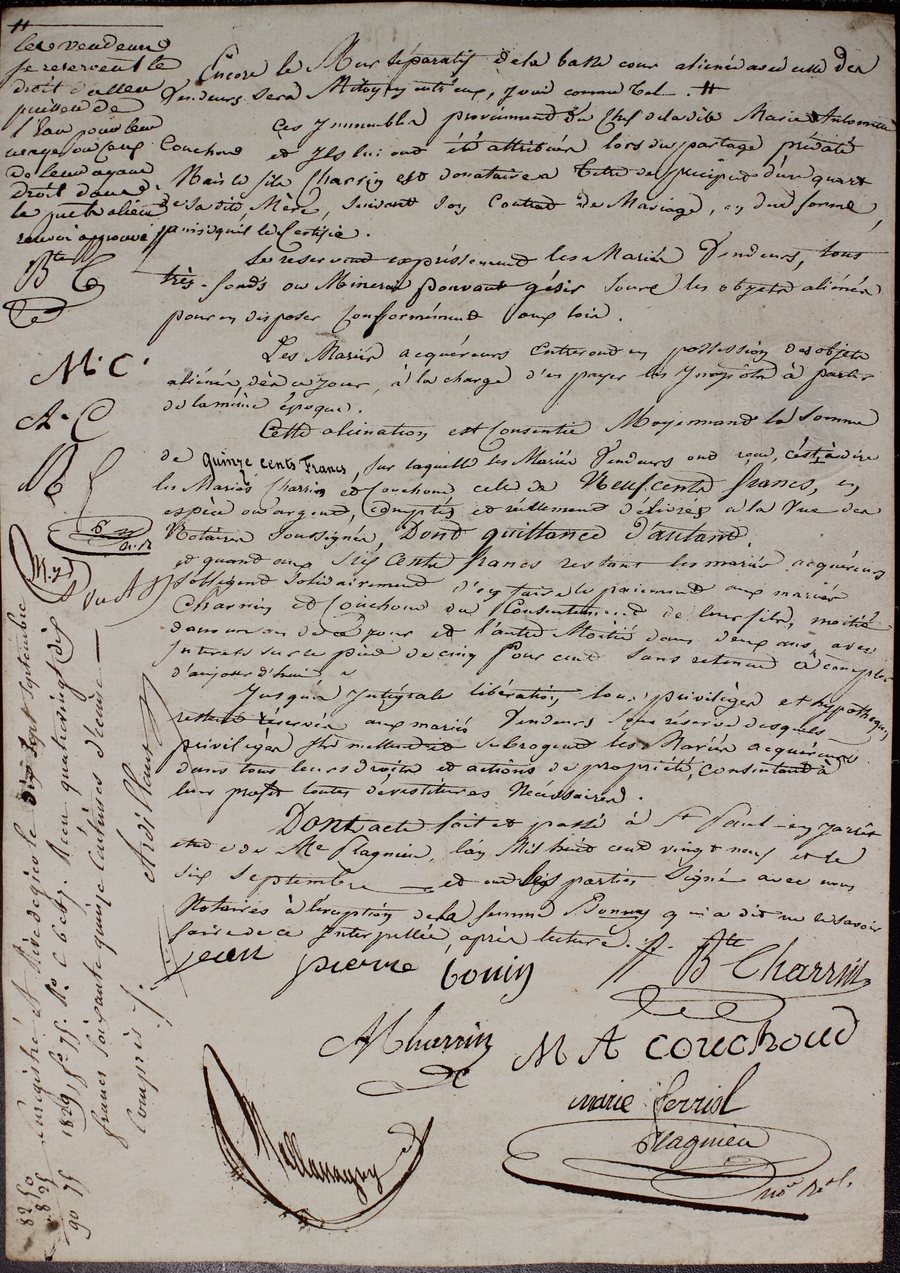 #
les vendeurs
se reservent le
droit d'aller
puiser de
l'Eau pour leur
usage ou ceux
de leur ayant
droit dans
le puits aliéné
renvoi approuvé
Bte C
M. C.
A. C
Encore le Mur séparatif de la basse cour aliénée avec celle des
Vendeurs sera Mitoyen entr'eux, jouï comme tel. #
Ces Immeubles proviennent du Chef de la dite Marie Antoinette
Couchoud et Ils lui ont été attribués lors du partage précité
Mais le fils Charrin est donataire a titre de préciput d'un quart
de sa dite Mère, suivant son Contrat de Mariage, en due forme,
ainsi qu'il le Certifie.
Se reservent expressement les Mariés Vendeurs, tous
très-fonds ou Minerai pouvant gésir sous les objets aliénés
pour en disposer Conformément aux loix.
Les Mariés acquéreurs Entreront en possession des objets
aliénés, dès ce jour, à la charge d'en payer les Impôts à partir
de la même époque.
Cette alienation est Consentie Moyennant la Somme
de quinze cents Francs, sur laquelle les Mariés Vendeurs ont reçu, c'est à dire
les Mariés Charrin et Couchoud, celle de Neuf cents francs, en
espèces ou argent, Comptés et réellement délivrés à la Vue des
Notaires Soussignés, Dont quittance d'autant.
et quant aux Six Cents francs restant les mariés acquéreurs
s'obligent Solidairement d'en faire le paiement aux mariés
Charrin et Couchoud du Consentement de leur fils, moitié
dans un an de ce jour et l'autre Moitié dans deux ans, avec
Interets sur le pied de cinq pour cent sans retenue à compter
d'aujourd'hui.
Jusqu'à Intégrale libération, tous privilèges et hypothèques
restent réservés aux mariés Vendeurs sous reserve desquels
privilèges Ils mettent et subrogent les Mariés acquéreurs
dans tous leurs droits et actions de propriété, consentant à
leur profit toutes devestitures Nécessaires.
Dont acte fait et passé à St Paul-en-Jarrêt
etude de Me Plagnieu, l'an Mil huit cent vingt neuf et le
six Septembre et ont les parties Signé avec nous
Notaires à l'exception de la femme Bonnay qui a dit ne le savoir
faire de ce Interpellée, après lecture.
jean pierre bonin
J. Bte Charrin
A Charrin
M A couchoud
marie ferriol
Plagnieu
nore Ral.
Enregistré à Rive de gier le dix sept septembre
1829 fo 75. Ro C 6 etc. Reçu quatre vingt dix
francs soixante quinze Centimes, decime
compris.
Ardillaux
82 50
8 25
90 75